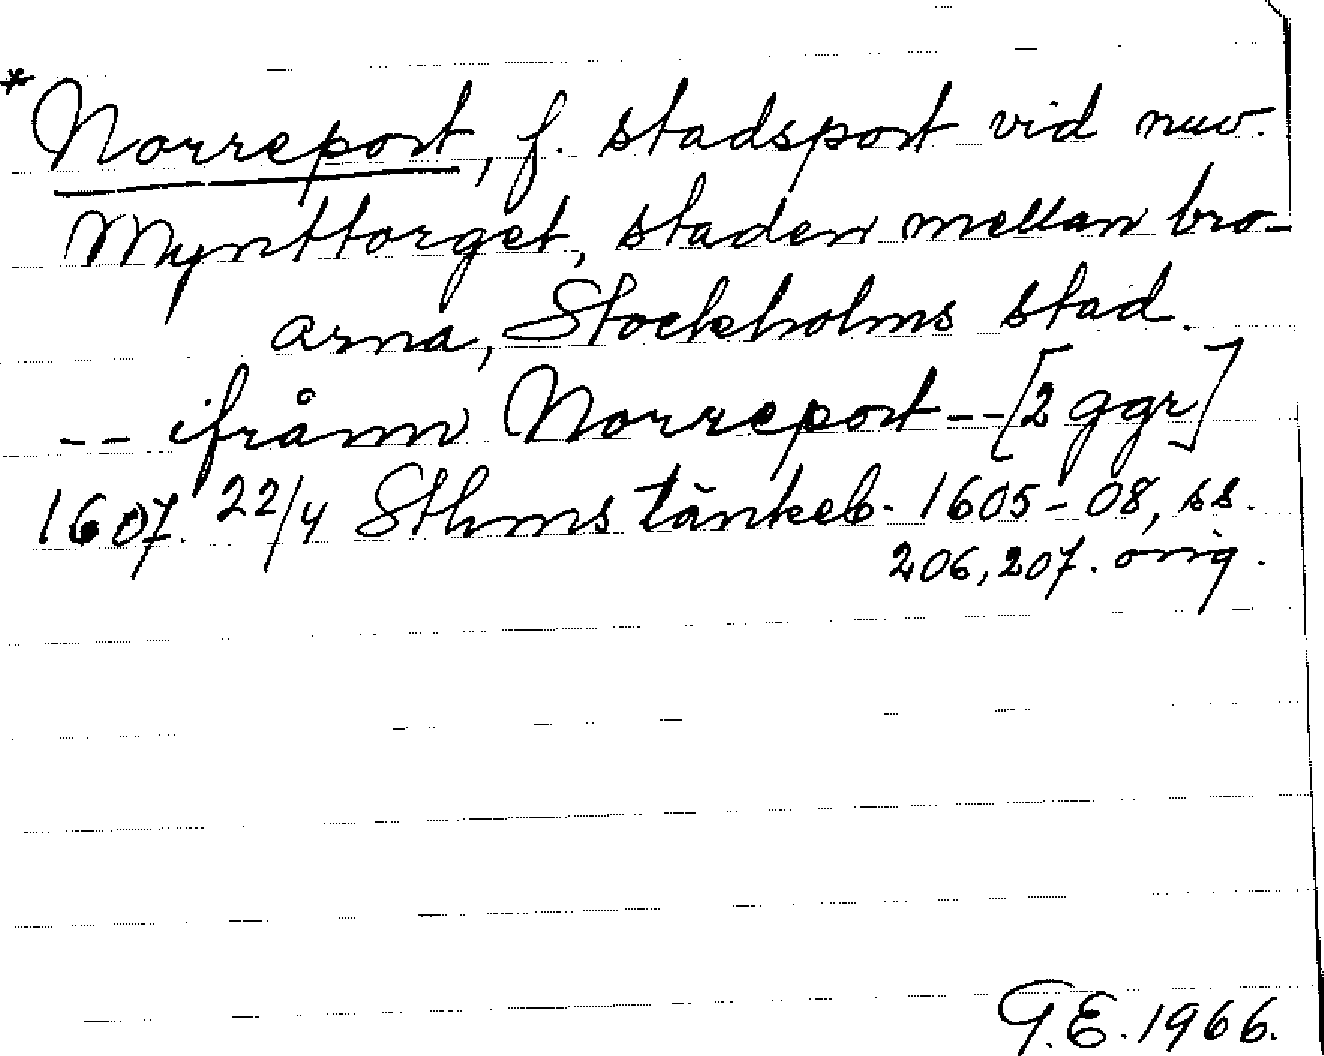 * Norreport, f. stadsport vid nuv.
Mynttorget, staden mellan bro-
arna, Stockholms stad.
-- ifrånn Norreport -- [2 ggr]
1607 22/4 Sthms tänkeb. 1605-08, ss.
206, 207. orig.
G.E. 1966.